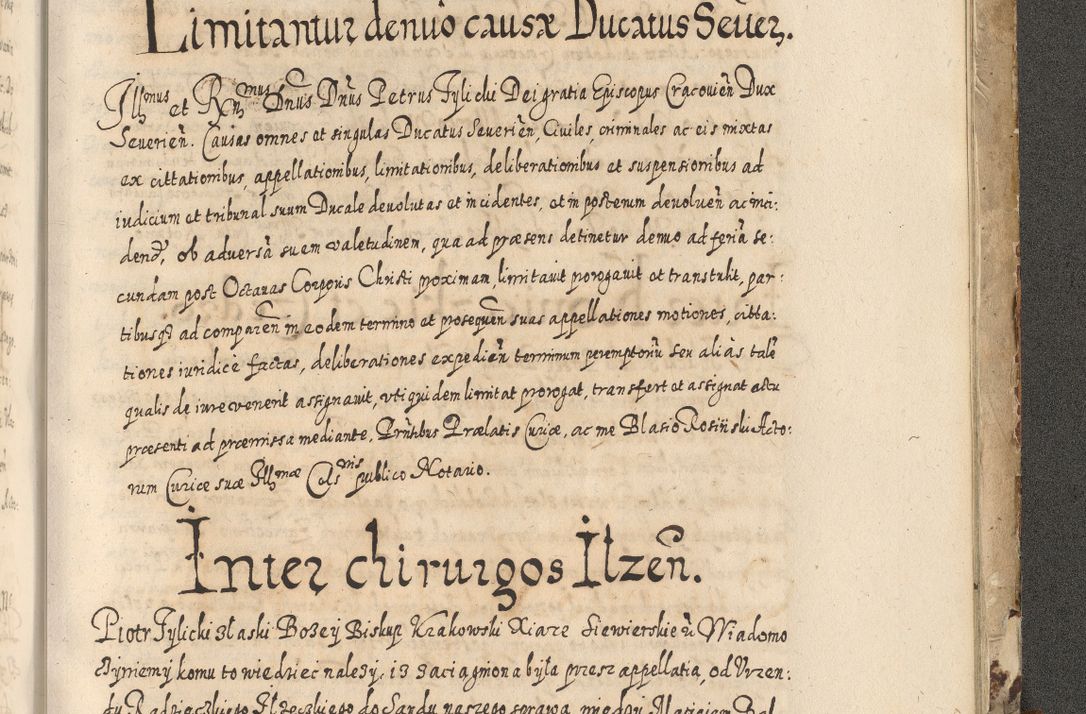 Limitantur denuo causæ Ducatus Seuer.
Illmus et Rndmus Dnus Dnus Petrus Tylicki Dei gratia Episcopus Cracouien̄ Dux
Seuerien̄. Causas omnes et singulas Ducatus Seuerien̄, Ciuiles, criminales ac eis mixtas
ex cittationibus, appellationibus, limitationibus, deliberationibus et suspensionibus ad
iudicium et tribunal suum Ducale deuolutas et incidentes, et in posterum deuoluen̄ ac inci:
dend, ob aduersā suam valetudinem, qua ad præsens detinetur denuo ad feriā se:
cundam post Octauas Corporis Christi proximam, limitauit prorogauit et transtulit, par:
tibusq3 ad comparen̄ in eodem termino et prosequen̄ suas appellationes motiones, citta:
tiones iuridicè factas, deliberationes expedien̄ terminum peremptoriū seu aliàs talē
qualis de iure venerit assignauit, vti quidem limitat prorogat, transfert et assignat actu
præsenti ad præmissa mediante, Prntibus Prælatis Curiæ, ac me Blasio Rosiński Acto:
rum Curiæ suæ Illmæ Celsnis publico Notario.
Inter chirurgos Ilzen̄.
Piotr Tylicki z łaski Bozey Biskup Krakowski Xiąze Siewierskie ü Wiadomo
czyniemy komu to wiedziec nalezy, iz zaciągniona była przez appellatią, od Vrzen:
du Radzieczkiego Ilzeczkiego do Sandu naszego sprawa, miedzy Matiaiem Bal